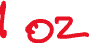 1 oz